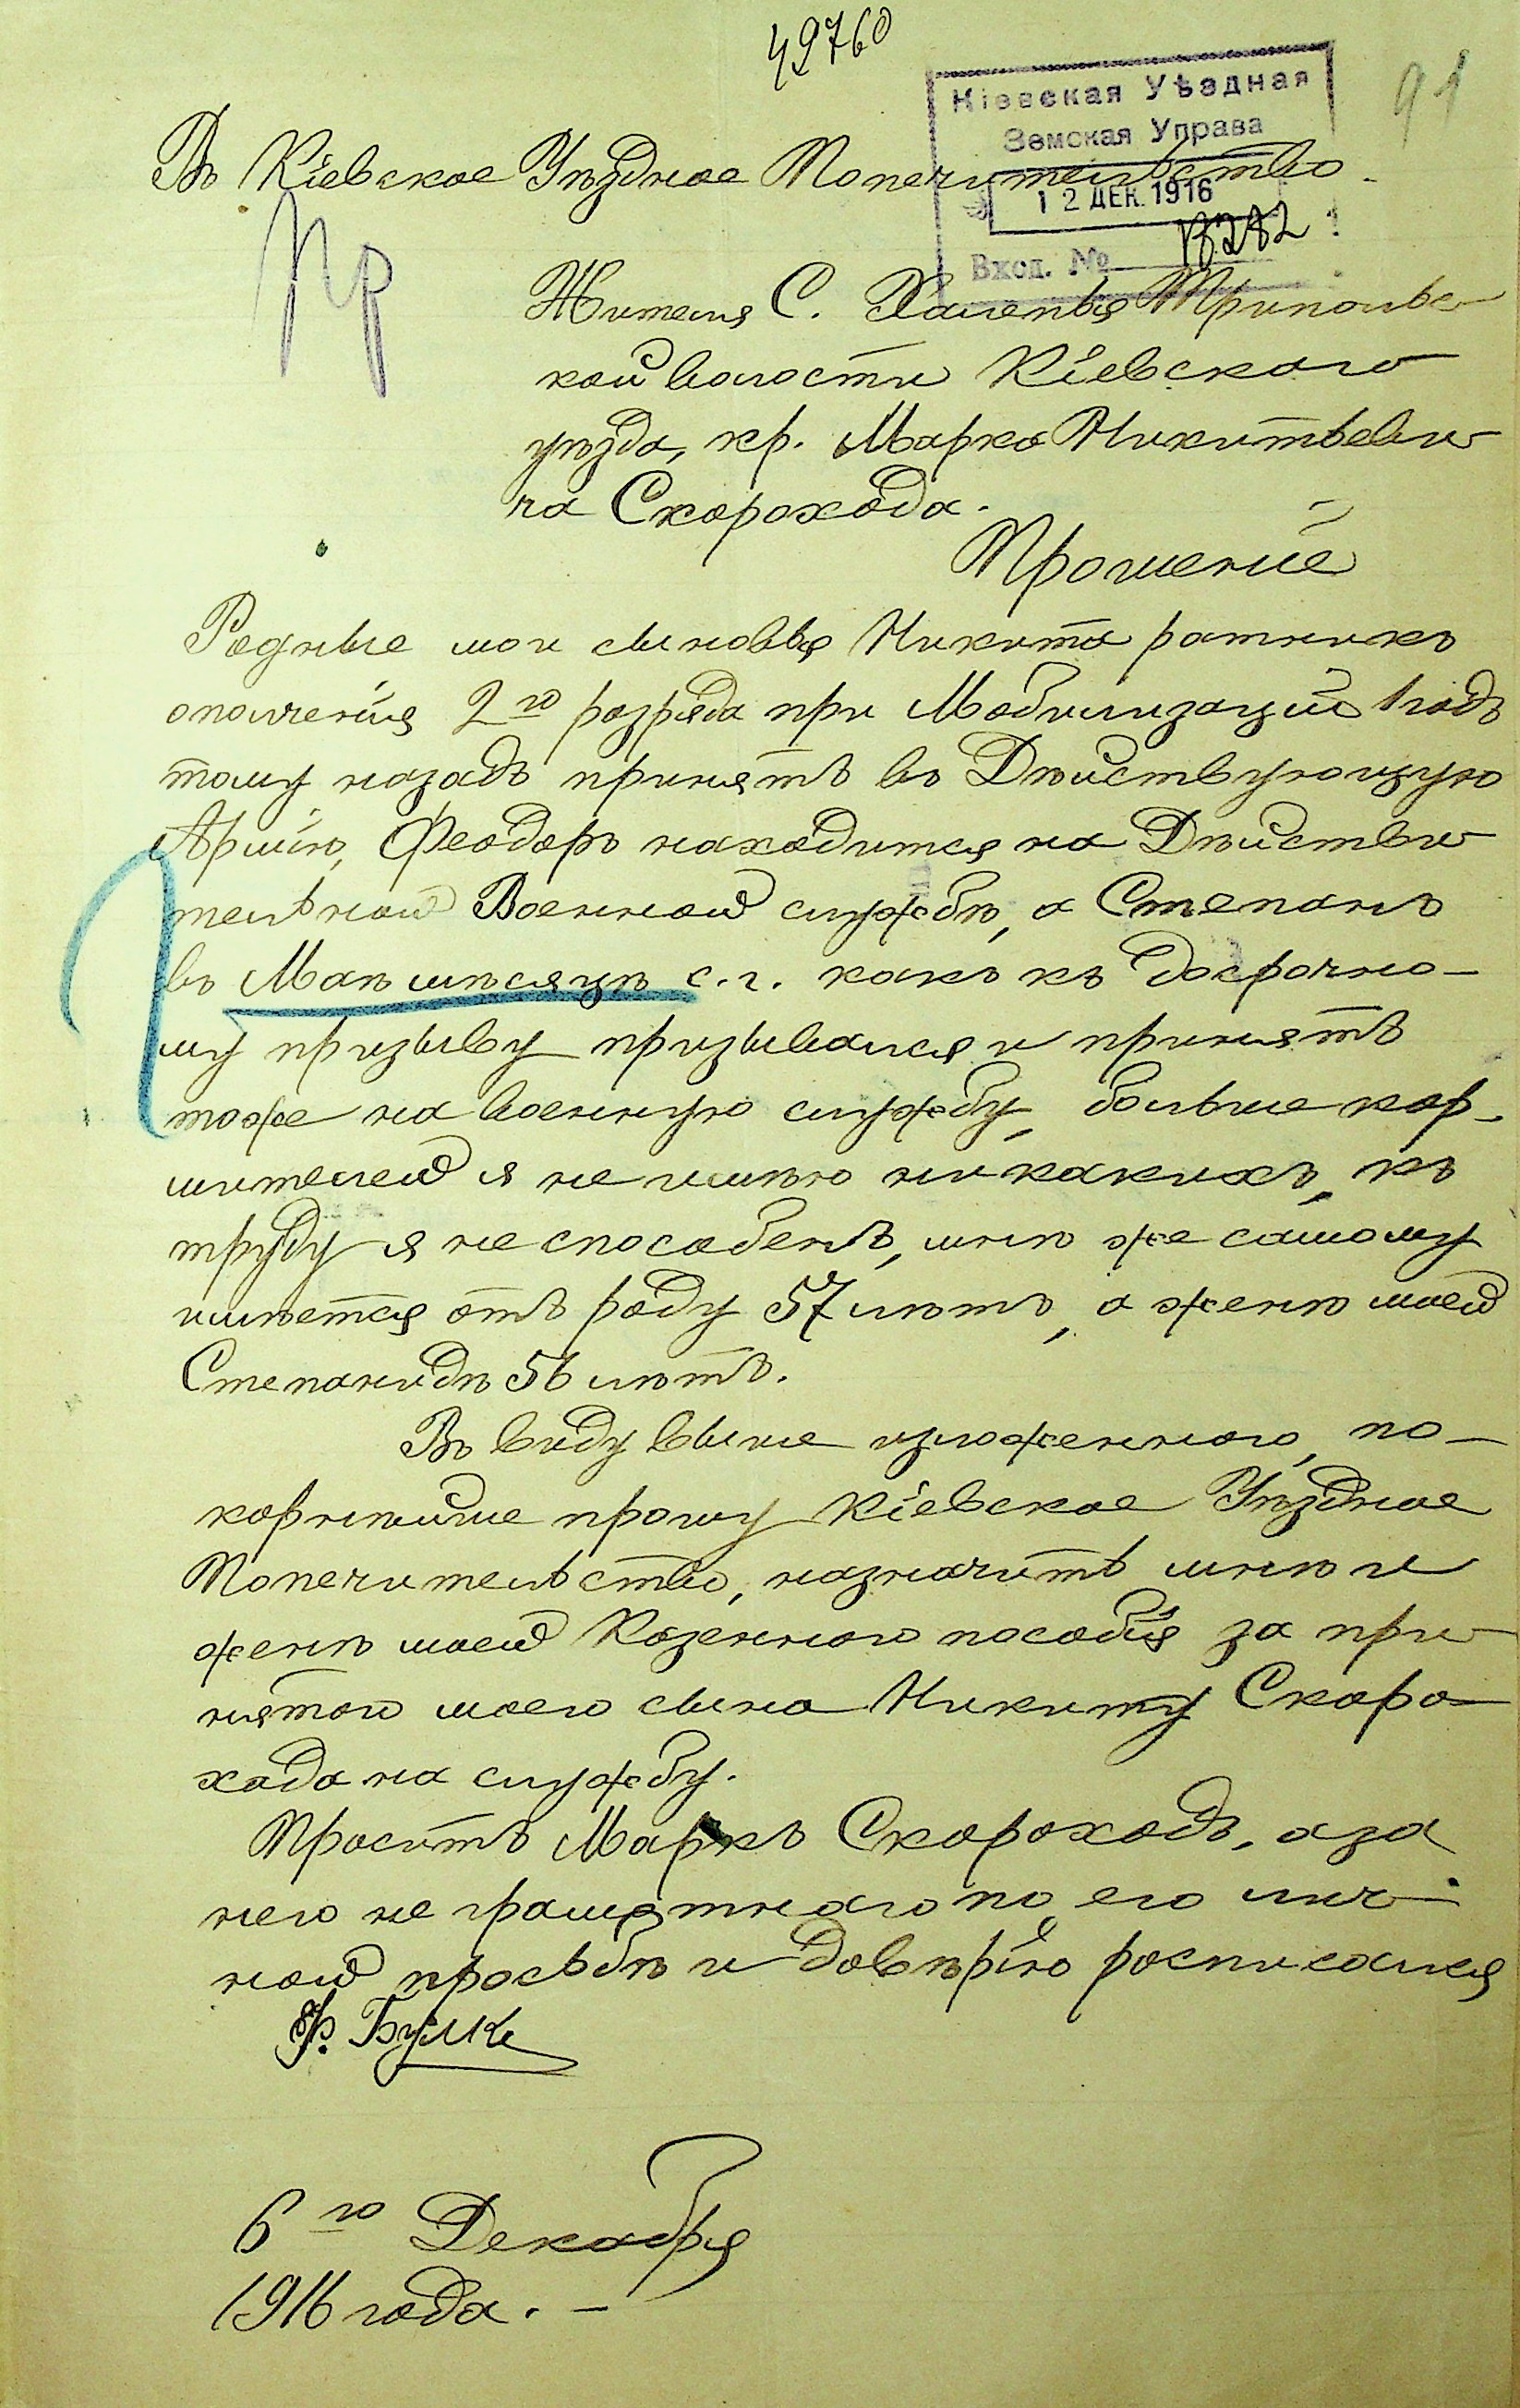 49760
91
Кіевская Уѣздная
Земская Управа
12 ДЕК. 1916
Вход. № 18282
Въ Кіевское Уѣздное Попечительство.
Пр
Жителя С. Халепья Трипольс-
кой волости Кіевскаго
уѣзда, кр. Марка Никитьеви-
ча Скорохода.
Прошеніе
Родные мои сыновья Никита ратникъ
ополченія 2го разряда при Мобилизаціи 1 годъ
тому назадъ принятъ въ Дѣйствующую
Армію, Феодоръ находится на Дѣйстви-
тельной Военной службѣ, а Степанъ
въ Маѣ мѣсяцѣ с.г. какъ къ досрочно-
му призыву призывался и принятъ
тоже на военную службу, больше кор-
мителей я не имѣю никакихъ, къ
труду я не способенъ, мнѣ же самому
имѣется отъ роду 57 лѣтъ, а женѣ моей
Степанидѣ 56 лѣтъ.
Въ виду выше изложеннаго, по-
корнѣйше прошу Кіевское Уѣздное
Попечительство, назначить мнѣ и
женѣ моей Казеннаго пособія за при-
нятого моего сына Никиту Скоро-
хода на службу.
Проситъ Маркъ Скороходъ, а за
него не грамотнаго по его лич-
ной просьбѣ и довѣрію росписался
Ф. Булка
6го Декабря
1916 года. —